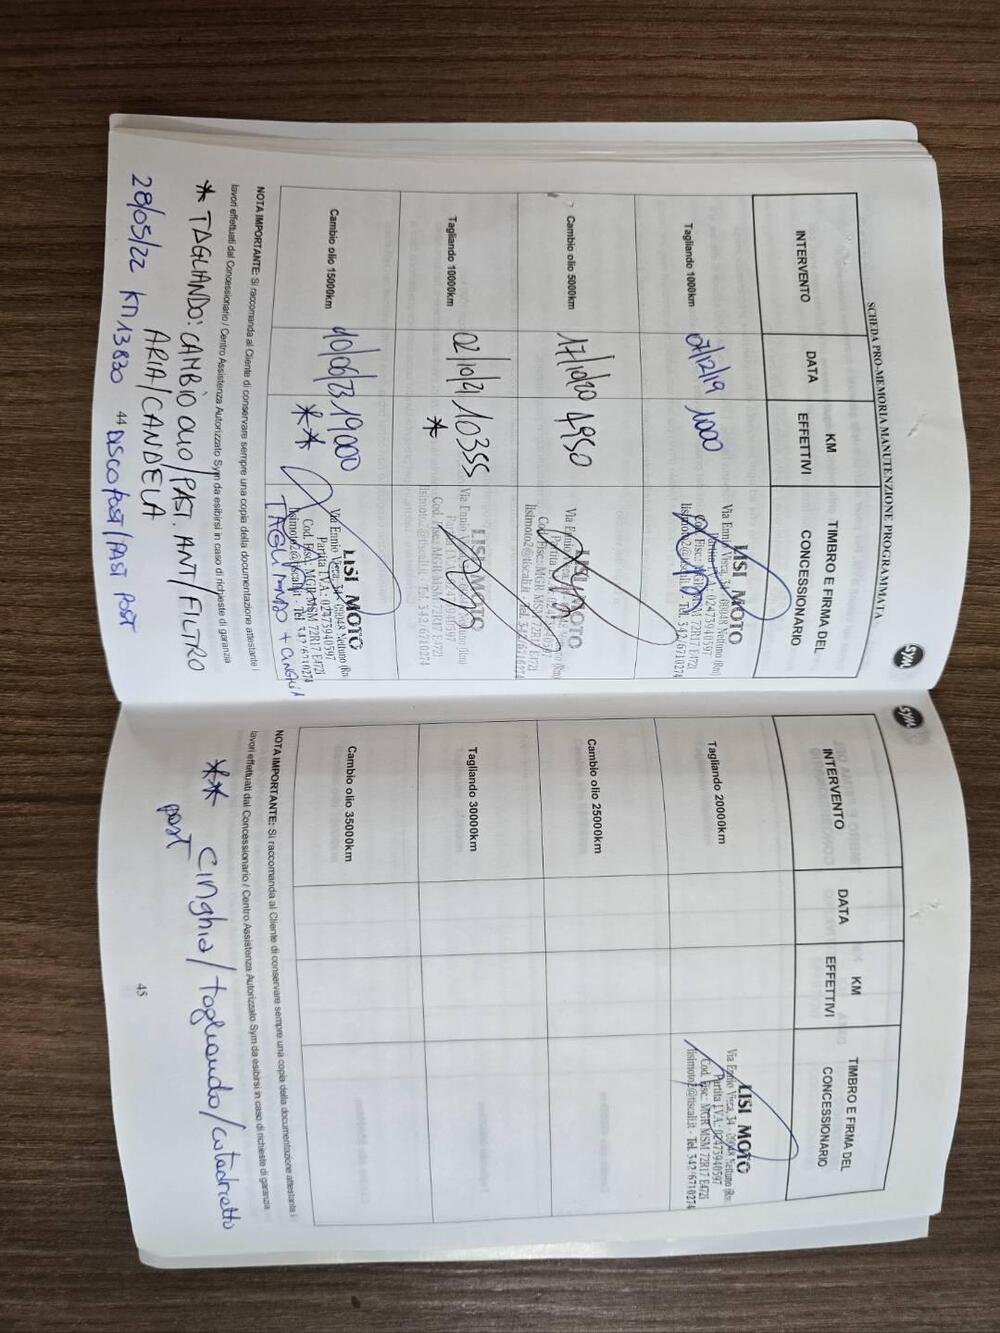 SCHEDA PRO-MEMORIA MANUTENZIONE PROGRAMMATA
SYM
INTERVENTO DATA KM EFFETTIVI TIMBRO E FIRMA DEL CONCESSIONARIO
Tagliando 1000km 07/12/19 1000
LISI MOTO
Via Ennio Visca, 34 - 00048 Nettuno (Rm)
Partita I.V.A.: 02473940597
Cod. Fisc.: MGR MSM 72R17 E472I
lisimoto2@tiscali.it - Tel. 342/6710274
Cambio olio 5000km 17/10/20 4950
LISI MOTO
Via Ennio
Partita
Cod. Fisc.: MGR MSM 72R17 E472I
lisimoto2@tiscali.it - Tel. 342/6710274
Tagliando 10000km 02/10/21 10355
*
LISI MOTO
Via Ennio Visca, Nettuno (Rm)
Partita I.V.A. 02473940597
Cod. Fisc. MGR MSM 72R17 E472I
lisimoto2@tiscali.it - Tel. 342/6710274
Cambio olio 15000km 10/06/23 19000
**
LISI MOTO
Via Ennio Visca, 34 - 00048 Nettuno (Rm
Partita I.V.A.: 02473940597
Cod. Fisc.: MGR MSM 72R17 E472I
lisimoto2@tiscali.it - Tel. 342/6710274
TAGLIANDO + CINGHIA
NOTA IMPORTANTE: Si raccomanda al Cliente di conservare sempre una copia della documentazione attestante i
lavori effettuati dal Concessionario / Centro Assistenza Autorizzato Sym da esibirsi in caso di richieste di garanzia
* TAGLIANDO: CAMBIO OLIO/PAST. ANT/FILTRO
ARIA/CANDELA
28/05/22 KM 13830 DISCO POST/PAST POST
44
SYM
INTERVENTO DATA KM EFFETTIVI TIMBRO E FIRMA DEL CONCESSIONARIO
Tagliando 20000km
LISI MOTO
Via Ennio Visca, 34 - 00048 Nettuno (Rm
Partita I.V.A.: 02473940597
Cod. Fisc.: MGR MSM 72R17 E472I
lisimoto2@tiscali.it - Tel. 342/6710274
Cambio olio 25000km
Tagliando 30000km
Cambio olio 35000km
NOTA IMPORTANTE: Si raccomanda al Cliente di conservare sempre una copia della documentazione attestante i
lavori effettuati dal Concessionario / Centro Assistenza Autorizzato Sym da esibirsi in caso di richieste di garanzia
** Cinghia/tagliando/catadiottro
post
45